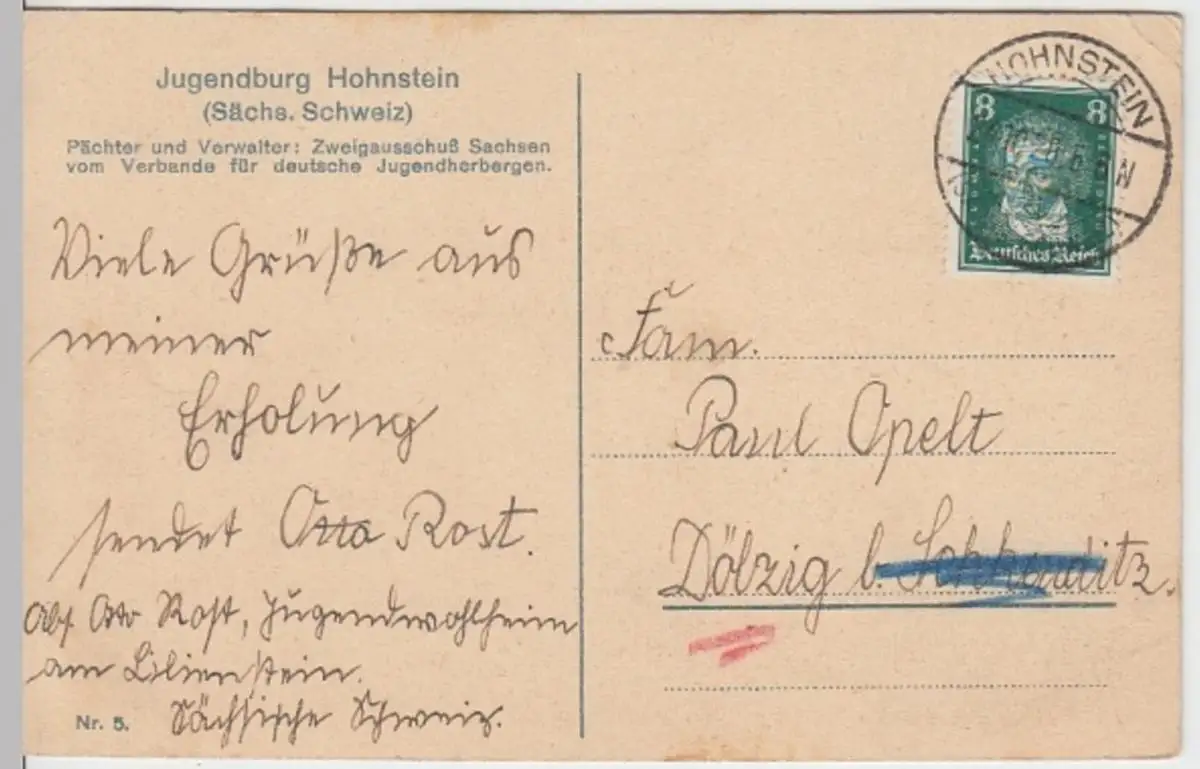 Jugendburg Hohnstein
(Sächs. Schweiz)
Pächter und Verwalter: Zweigausschuß Sachsen
vom Verbande für deutsche Jugendherbergen.
Viele Grüße aus
meiner
Erholung
sendet Otto Rost.
Abs. Otto Rost, Jugendwohlheim
am Lilienstein.
Sächsische Schweiz.
Nr. 5.
HOHNSTEIN
8 8
Deutsches Reich
Fam.
Paul Opelt
Dölzig b. Schkeuditz.